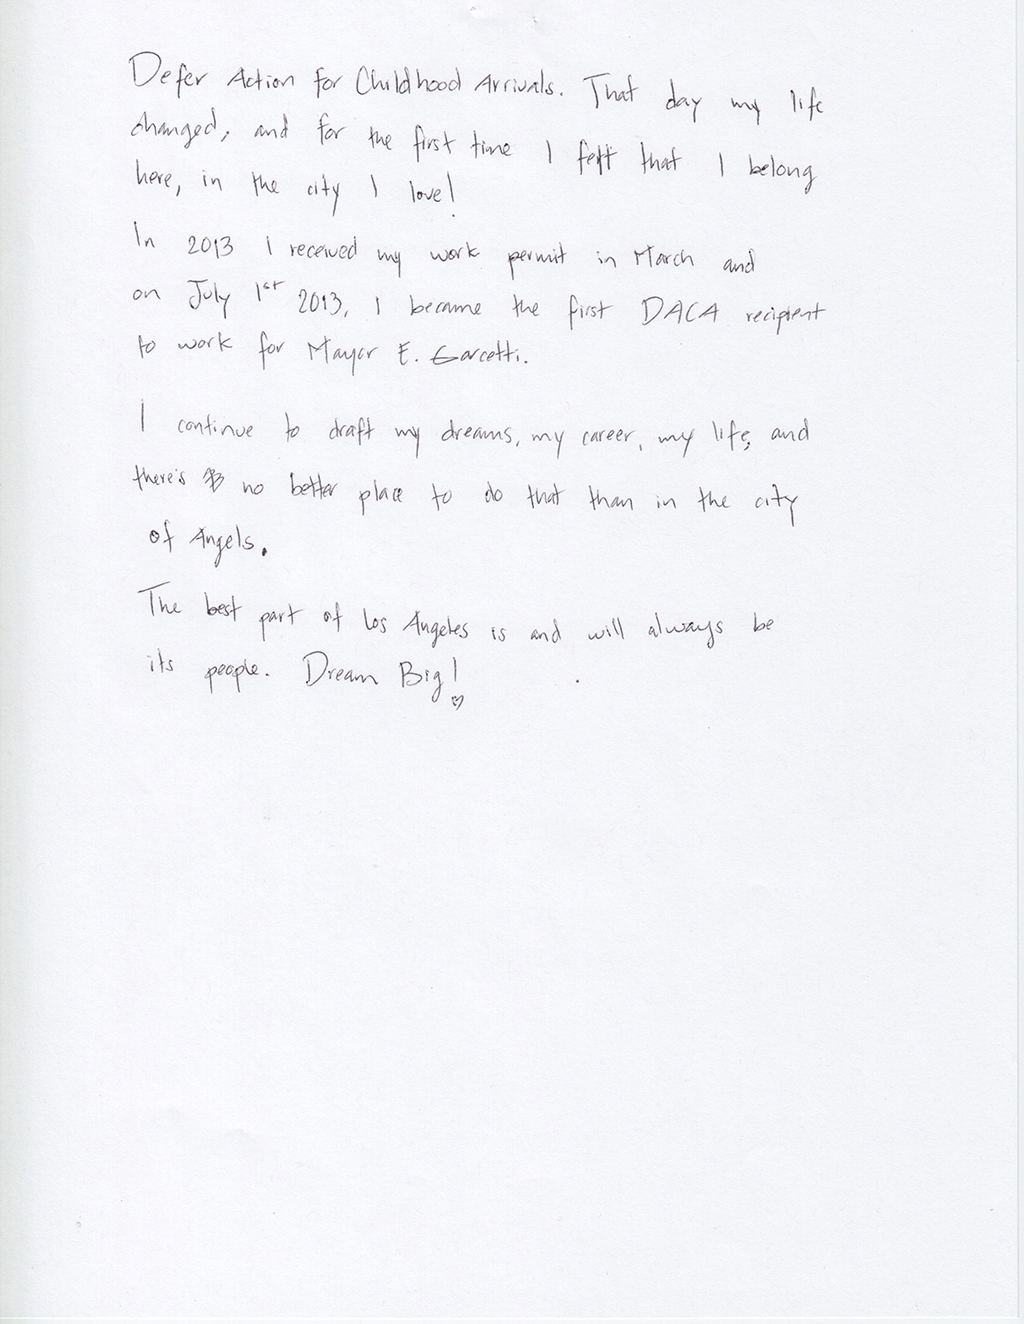 Defer Action for Childhood Arrivals. That day my life
changed, and for the first time I felt that I belong
here, in the city I love!
In 2013 I received my work permit in March and
on July 1st 2013, I became the first DACA recipient
to work for Mayor E. Garcetti.
I continue to draft my dreams, my career, my life, and
there's no better place to do that than in the city
of Angels.
The best part of Los Angeles is and will always be
its people. Dream Big!